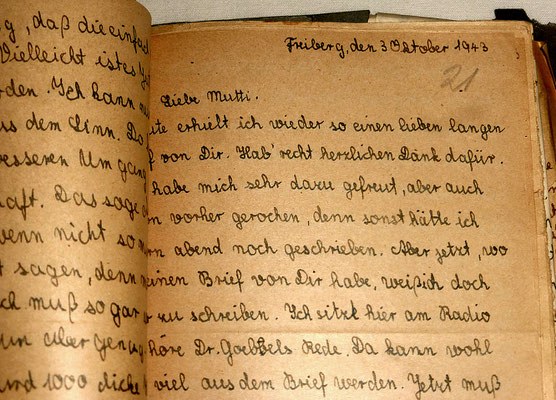 daß die einfach
Vielleicht ist es
rden. Ich kann
us dem Sinn. Da
esseren Umgang
haft. Das sage
wenn nicht so
sagen, denn
ch muß so gar
un aber genug
und 1000 dicke
Freiberg, den 3 Oktober 1943
21
Liebe Mutti.
ute erhielt ich wieder so einen lieben langen
f von Dir. Hab' recht herzlichen Dank dafür.
habe mich sehr dazu gefreut, aber auch
n vorher gerochen, denn sonst hätte ich
rn abend noch geschrieben. Aber jetzt, wo
einen Brief von Dir habe, weiß ich doch
r zu schreiben. Ich sitze hier am Radio
höre Dr. Goebbels Rede. Da kann wohl
viel aus dem Brief werden. Jetzt muß